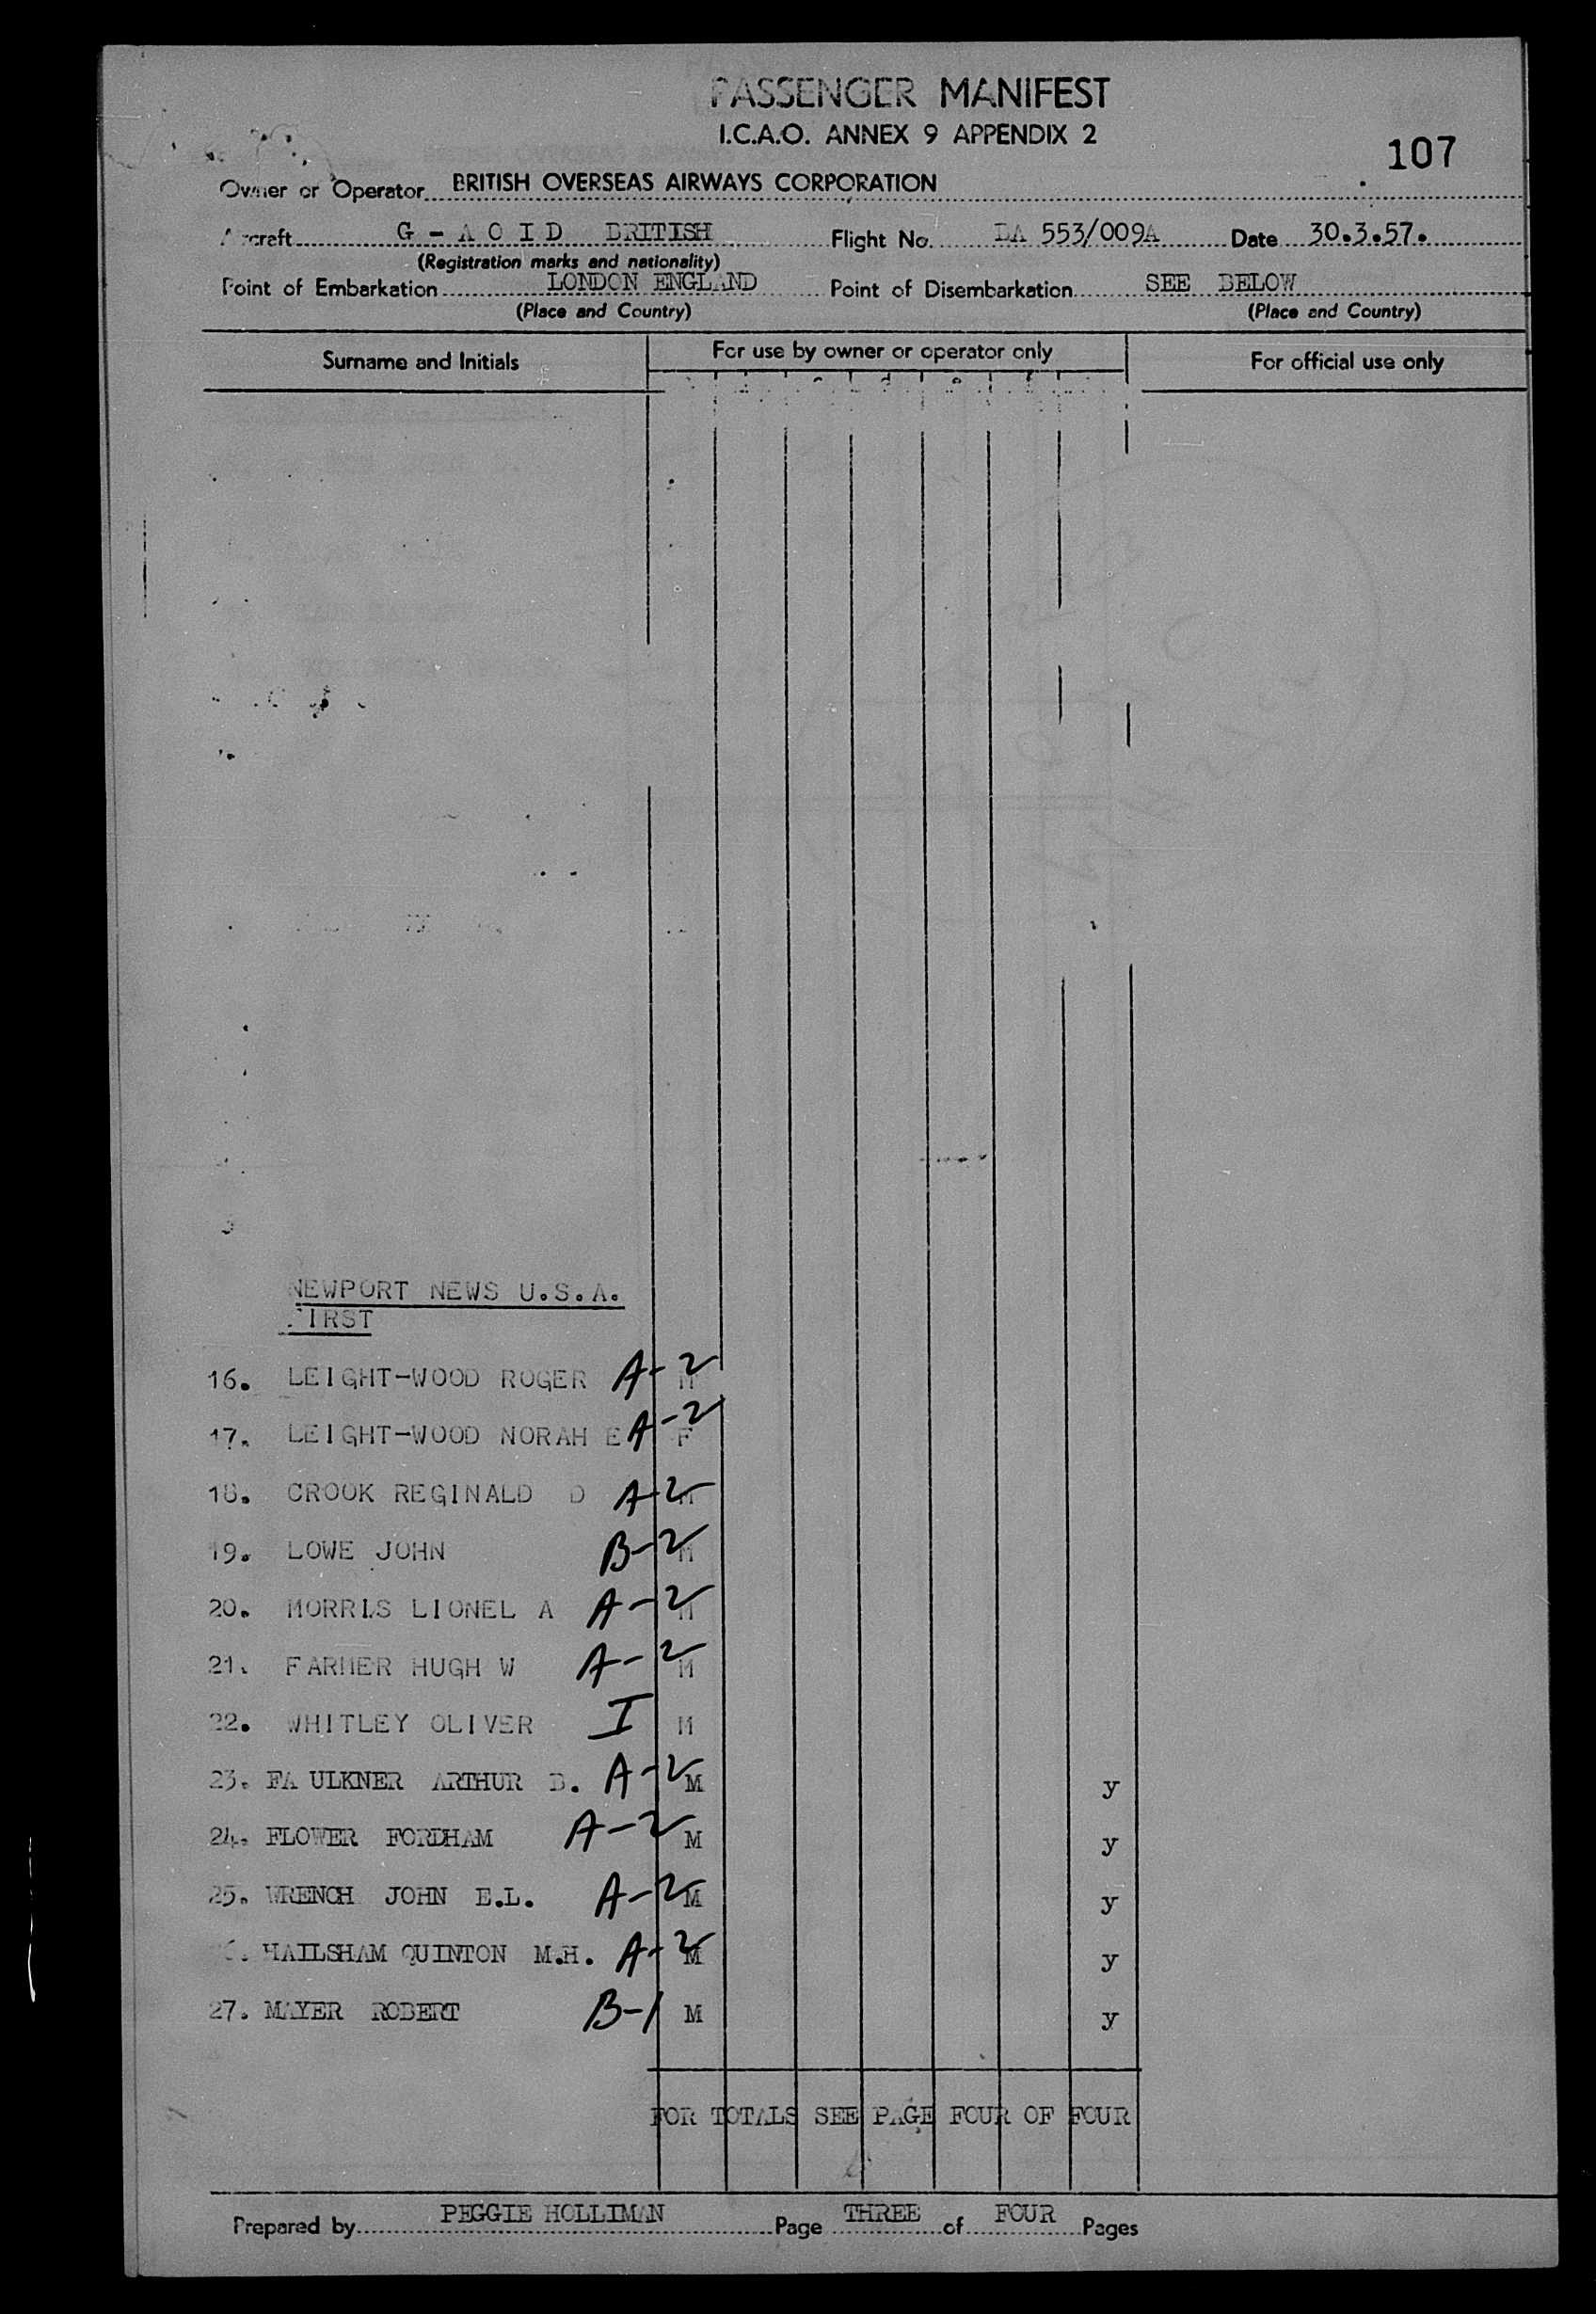 PASSENGER MANIFEST
I.C.A.O. ANNEX 9 APPENDIX 2
107
Owner or Operator BRITISH OVERSEAS AIRWAYS CORPORATION
Aircraft G - A O I D BRITISH Flight No. BA 553/009A Date 30.3.57.
(Registration marks and nationality)
Point of Embarkation LONDON ENGLAND Point of Disembarkation SEE BELOW
(Place and Country) (Place and Country)
Surname and Initials For use by owner or operator only For official use only
NEWPORT NEWS U.S.A.
FIRST
16. LEIGHT-WOOD ROGER A-2 M
17. LEIGHT-WOOD NORAH E A-2 F
18. CROOK REGINALD D A-2 M
19. LOWE JOHN B-2 M
20. MORRIS LIONEL A A-2 M
21. FARMER HUGH W A-2 M
22. WHITLEY OLIVER I M
23. FA ULKNER ARTHUR B. A-2 M y
24. FLOWER FORDHAM A-2 M y
25. WRENCH JOHN E.L. A-2 M y
26. HAILSHAM QUINTON M.H. A-2 M y
27. MAYER ROBERT B-1 M y
FOR TOTALS SEE PAGE FOUR OF FOUR
Prepared by PEGGIE HOLLIMAN Page THREE of FOUR Pages